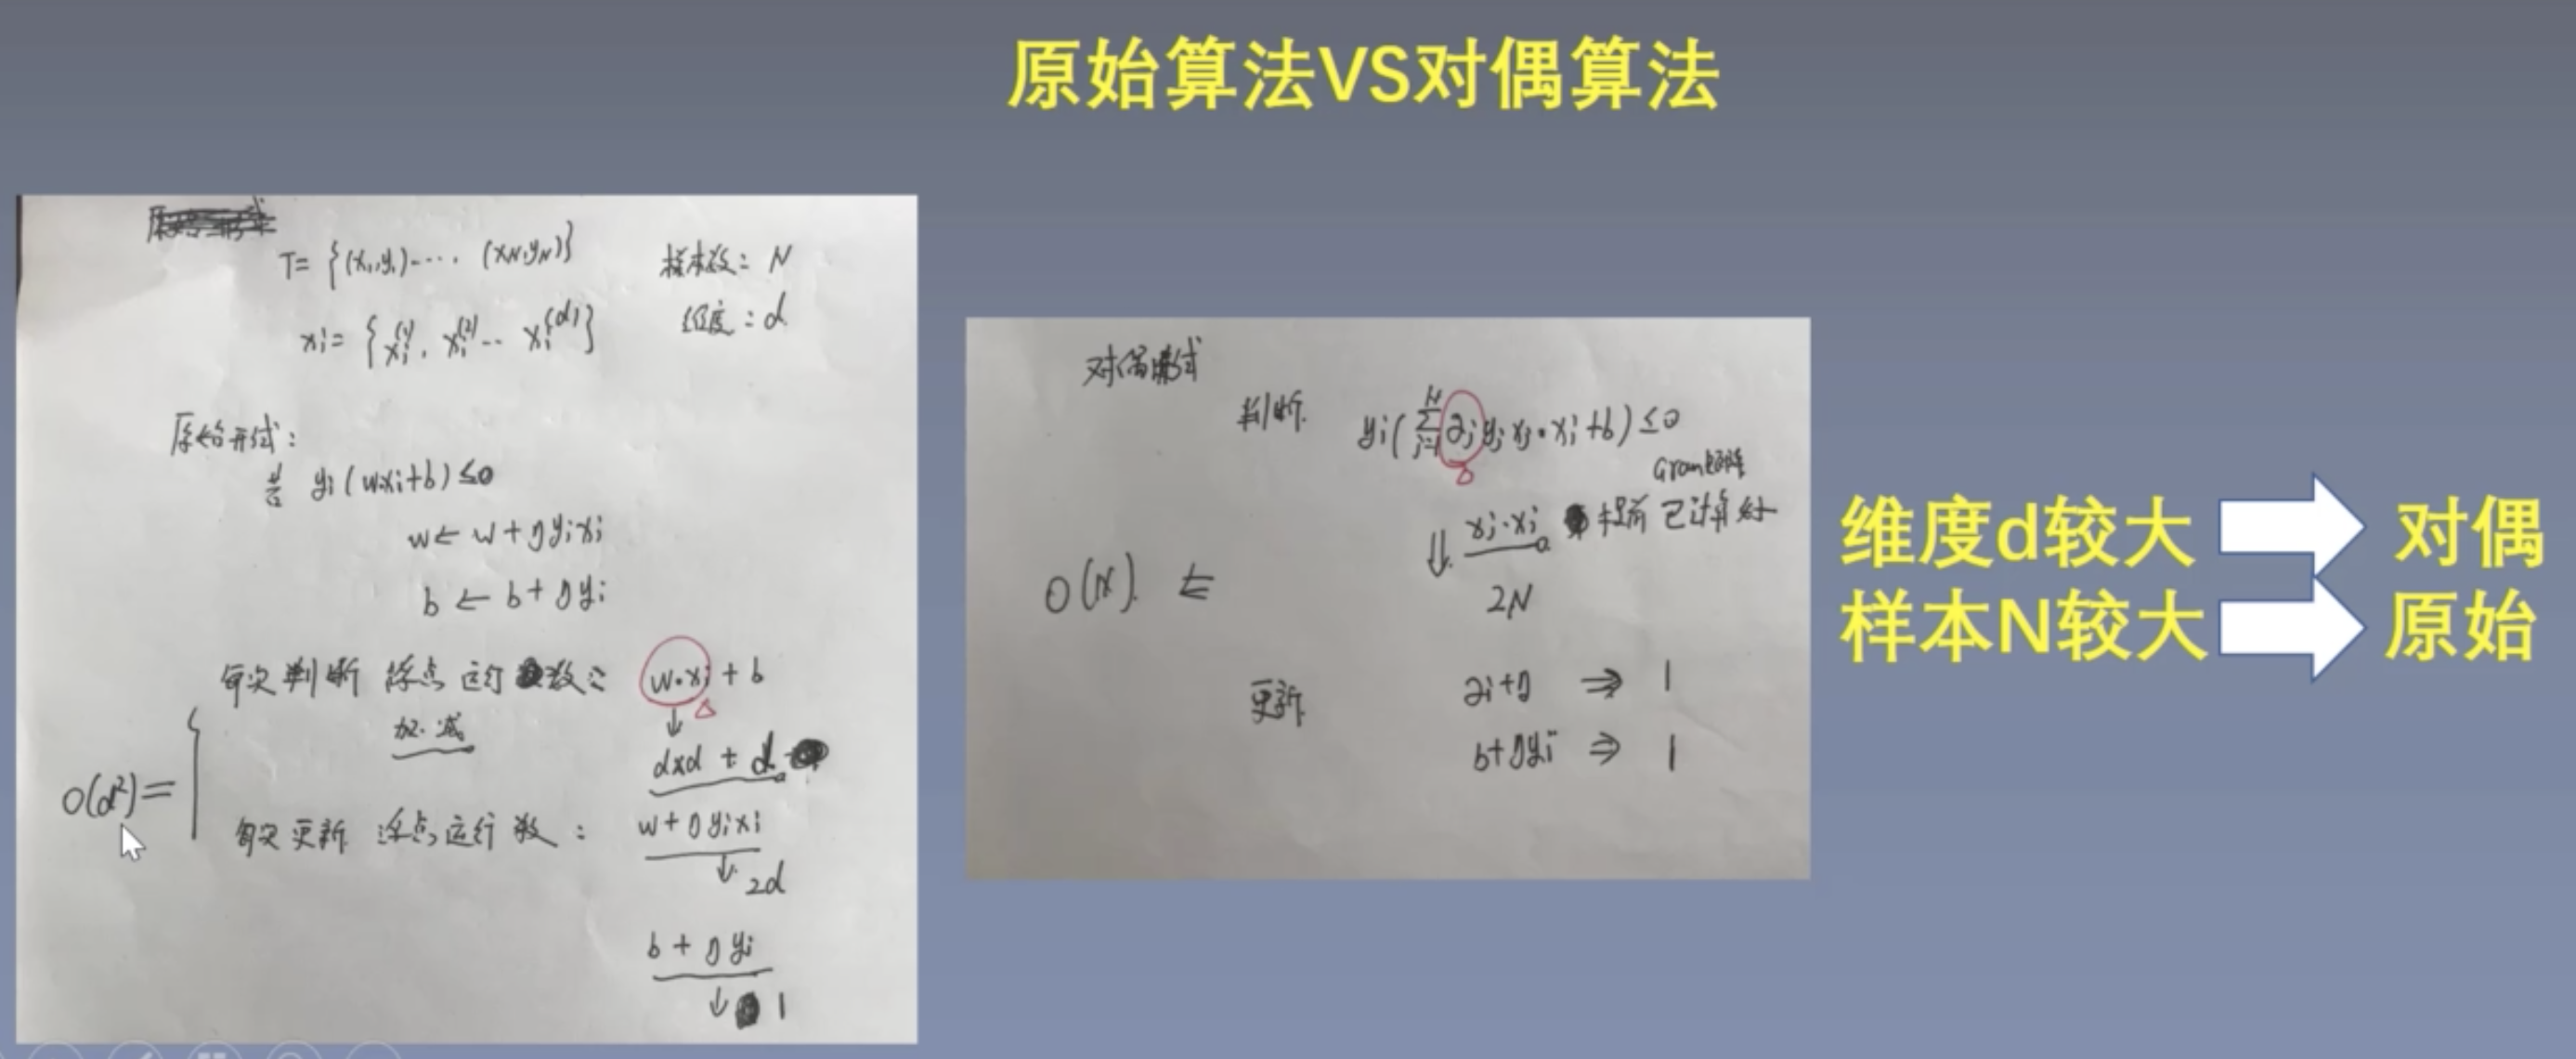 原始算法VS对偶算法
T= {(x₁,y₁)----. (xN,yN)} 样本数: N
xi= {xi⁽¹⁾, xi⁽²⁾-- xi⁽ᵈ⁾} 维度: d
原始形式:
若 yi(w·xi+b)≤0
w← w+ηyixi
b ← b+ηyi
每次判断 浮点运行数: w·xi+b
↓
加·减
d×d + d
O(d²)= {
每次更新 浮点运行数: w+ηyixi
↓ 2d
b + ηyi
↓ 1
对偶形式
判断. yi(∑ᴺⱼ₌₁ αj yj xj·xi+b)≤0
Gram矩阵
⇓ xj·xi 提前已计算好
O(N). ⇐ 2N
更新 αi+η ⇒ 1
b+ηyi ⇒ 1
维度d较大 对偶
样本N较大 原始